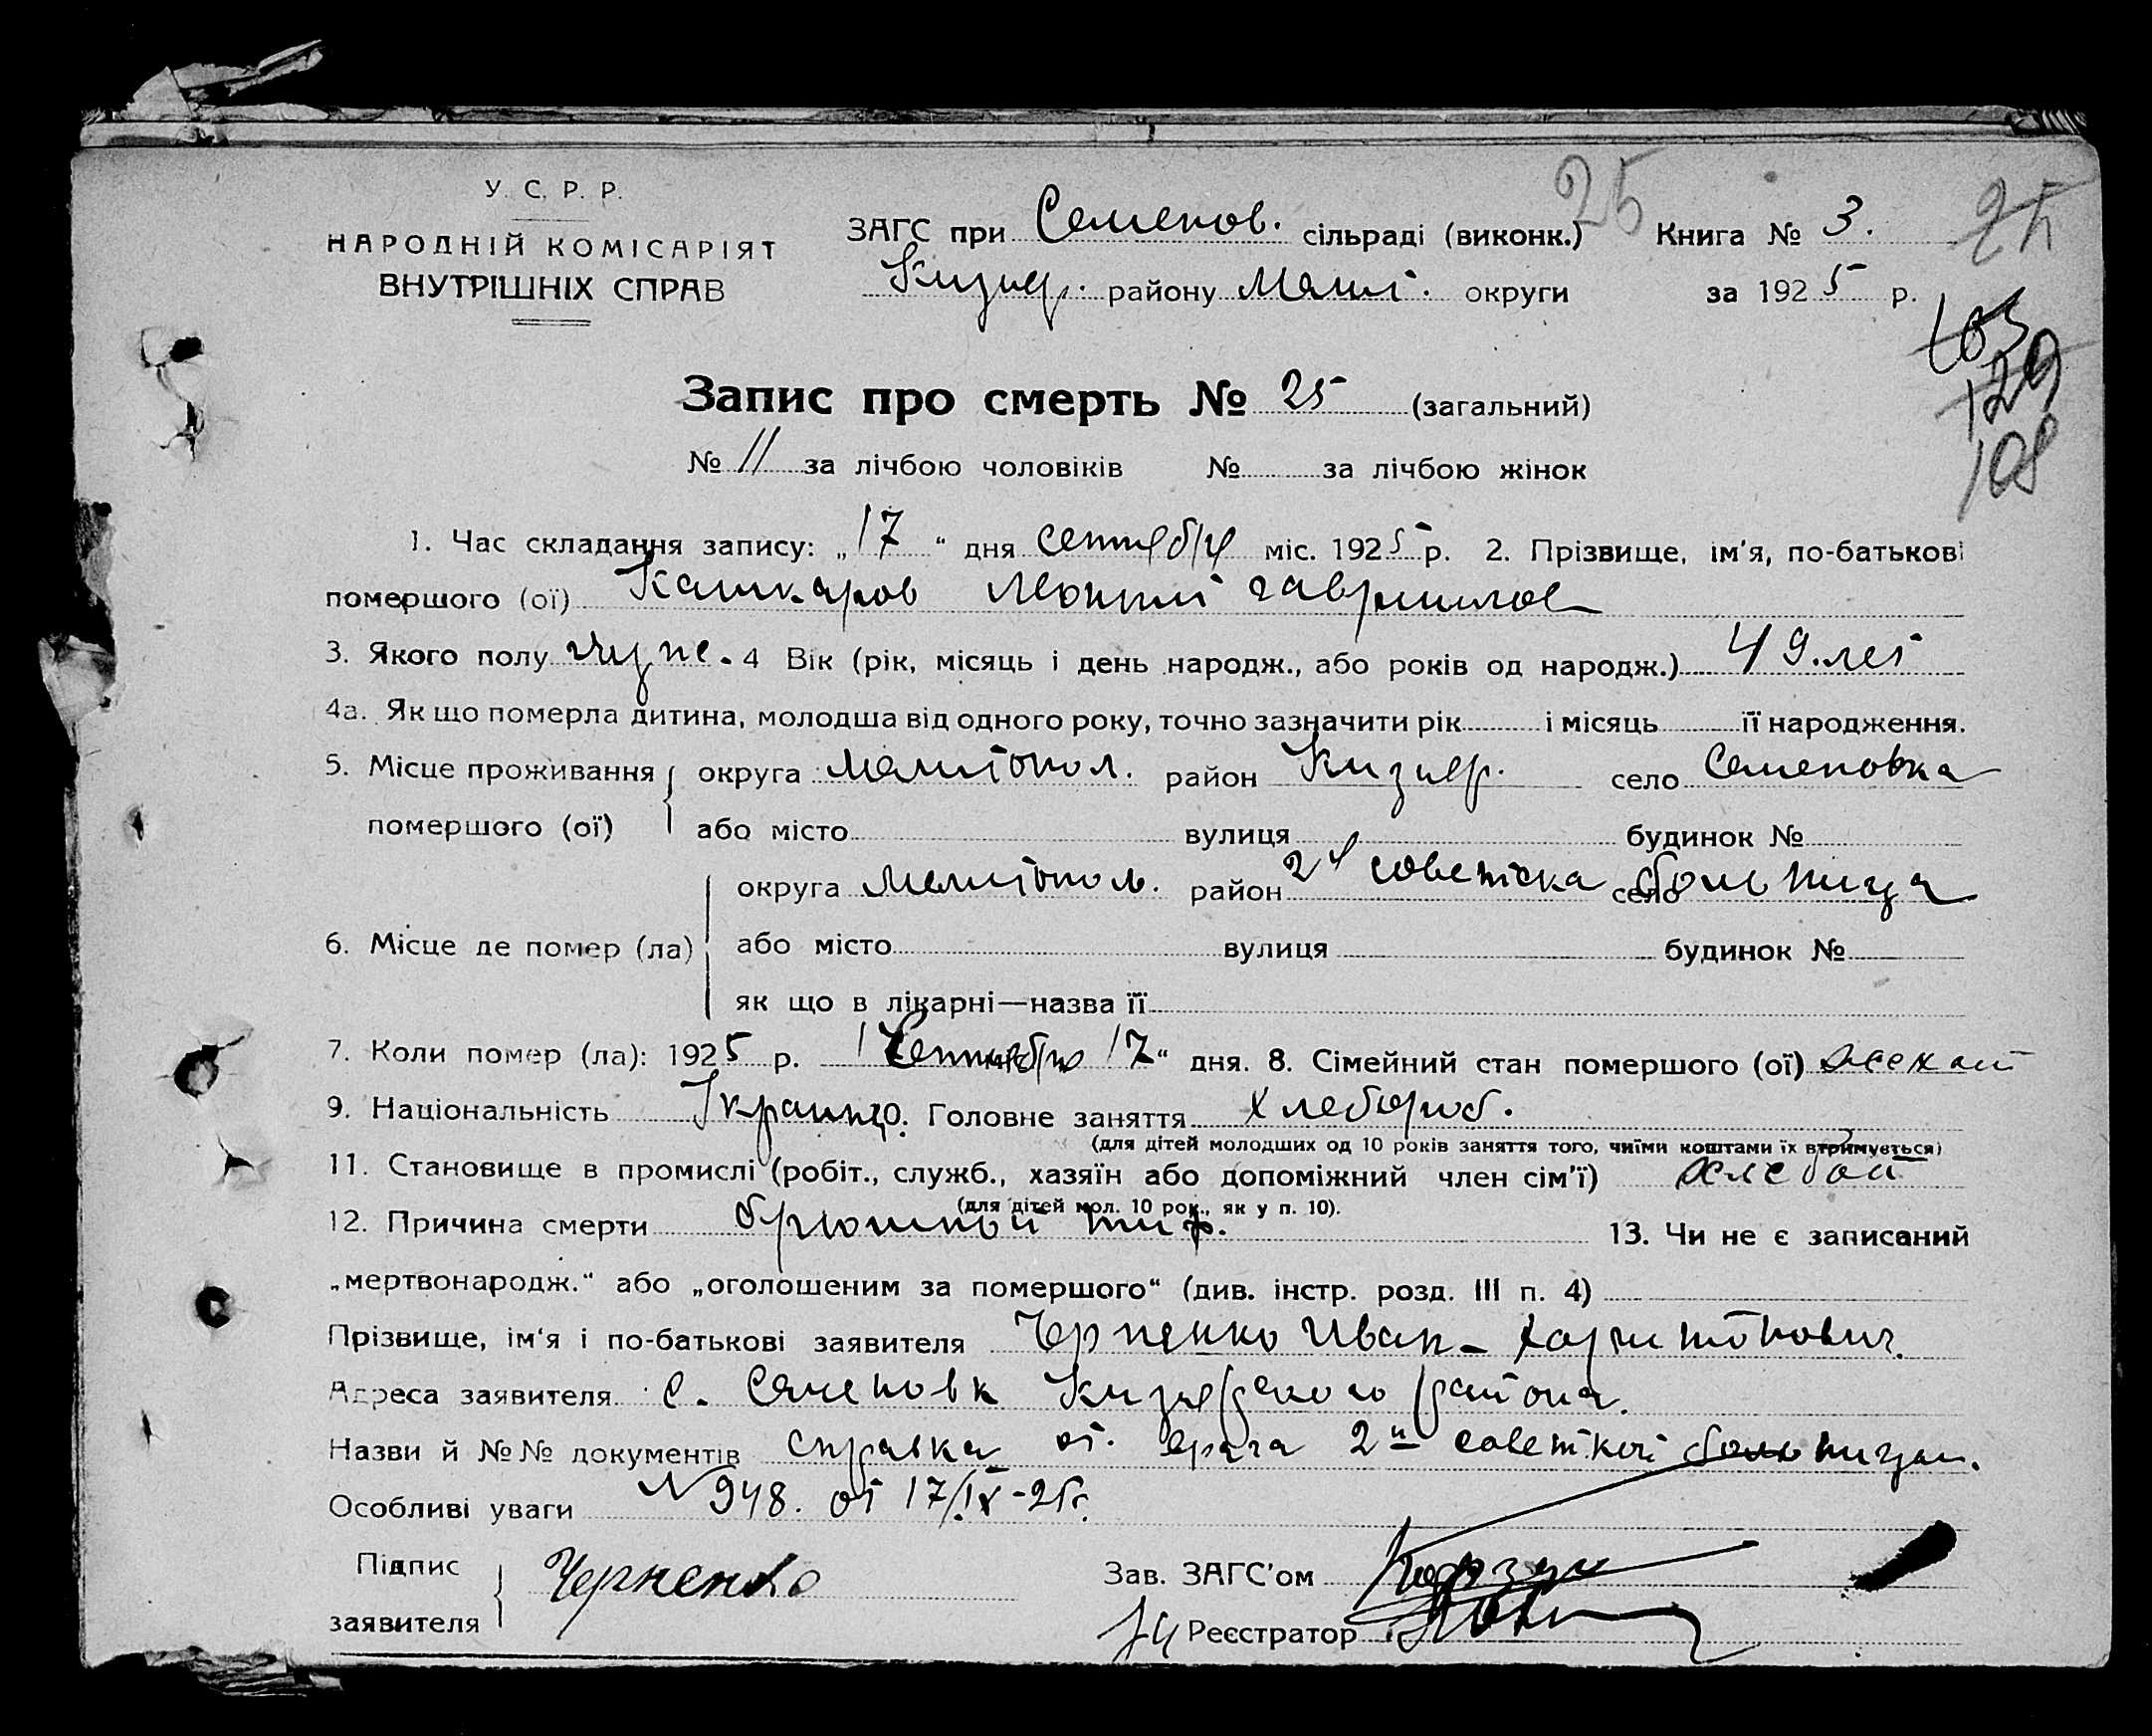 25
У. С. Р. Р.
НАРОДНІЙ КОМІСАРІЯТ
ВНУТРІШНІХ СПРАВ
ЗАГС при Семенов. сільраді (виконк.) Книга № 3. 25
Кизияр. району Меліт. округи за 1925 р.
103
129
108
Запис про смерть № 25 (загальний)
№ 11 за лічбою чоловіків № за лічбою жінок
1. Час складання запису: „17" дня сентября міс. 1925 р. 2. Прізвище, ім'я, по-батькові
помершого (ої) Кашкаров Леонтий гаврилов
3. Якого полу муже. 4 Вік (рік, місяць і день народж., або років од народж.) 49. лет
4а. Як що померла дитина, молодша від одного року, точно зазначити рік і місяць її народження.
5. Місце проживання округа мелитопол. район Кизияр. село Семеновка
помершого (ої) або місто вулиця будинок №
округа Мелитополь. район 2я советска село больница
6. Місце де помер (ла) або місто вулиця будинок №
як що в лікарні—назва її
7. Коли помер (ла): 1925 р. Сентября 17" дня. 8. Сімейний стан помершого (ої) женат
9. Національність Украинц 10. Головне заняття хлебороб.
(для дітей молодших од 10 років заняття того, чиїми коштами їх втримується)
11. Становище в промислі (робіт., служб., хазяїн або допоміжний член сім'ї)
(для дітей мол. 10 рок., як у п. 10).
12. Причина смерти брюшной тиф. 13. Чи не є записаний
„мертвонародж." або „оголошеним за помершого" (див. інстр. розд. III п. 4)
Прізвище, ім'я і по-батькові заявителя Черненко Иван - Харитонович.
Адреса заявителя с. Семеновк Кизиярского района.
Назви й №№ документів справка от. врача 2й советкой больницы.
Особливі уваги N 948. от 17/IX-25г.
Підпис
заявителя Черненко
Зав. ЗАГС'ом
Реєстратор